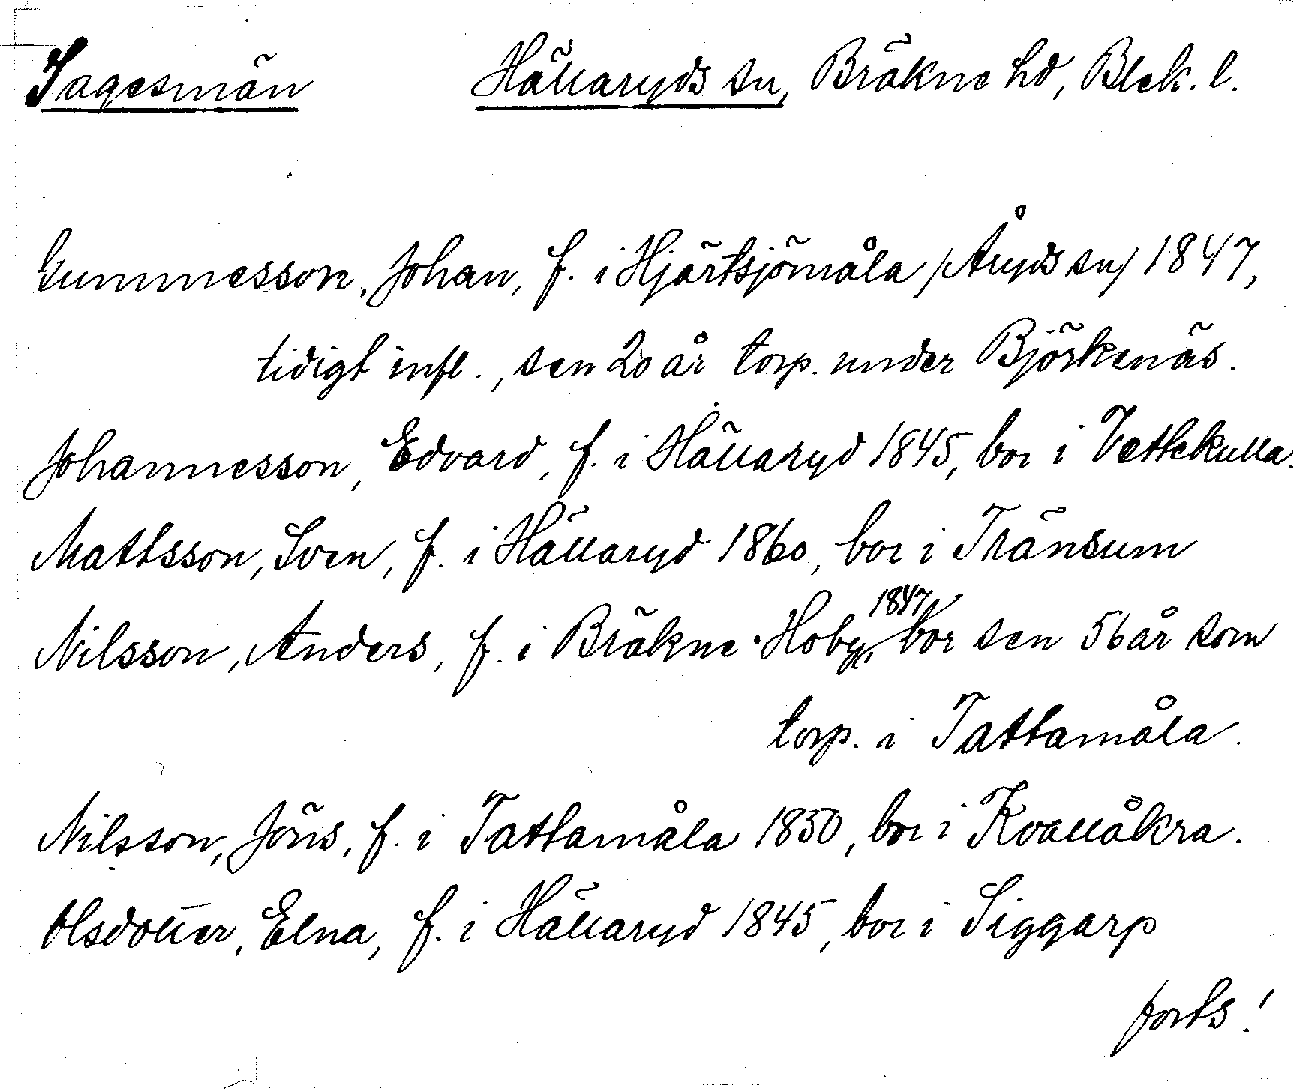 Sagesmän Hällaryds sn, Bräkne hd, Blek. l.
Gummesson, Johan, f. i Hjärtsjömåla /Åryds sn/ 1847,
tidigt infl., sen 20 år torp. under Björkenäs.
Johannesson, Edvard, f. i Hällaryd 1845, bor i Vettekulla.
Mattsson, Sven, f. i Hällaryd 1860, bor i Tränsum
Nilsson, Anders, f. i Bräkne-Hoby, 1847, bor sen 56 år som
torp. i Tattamåla.
Nilsson, Jöns, f. i Tattamåla 1850, bor i Kvallåkra.
Olsdotter, Elna, f. i Hällaryd 1845, bor i Siggarp
forts!